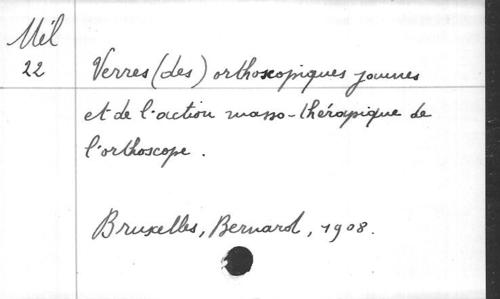 Mél
22
Verres (des) orthoscopiques jaunes
et de l'action masso-thérapique de
l'orthoscope.
Bruxelles, Bernard, 1908.